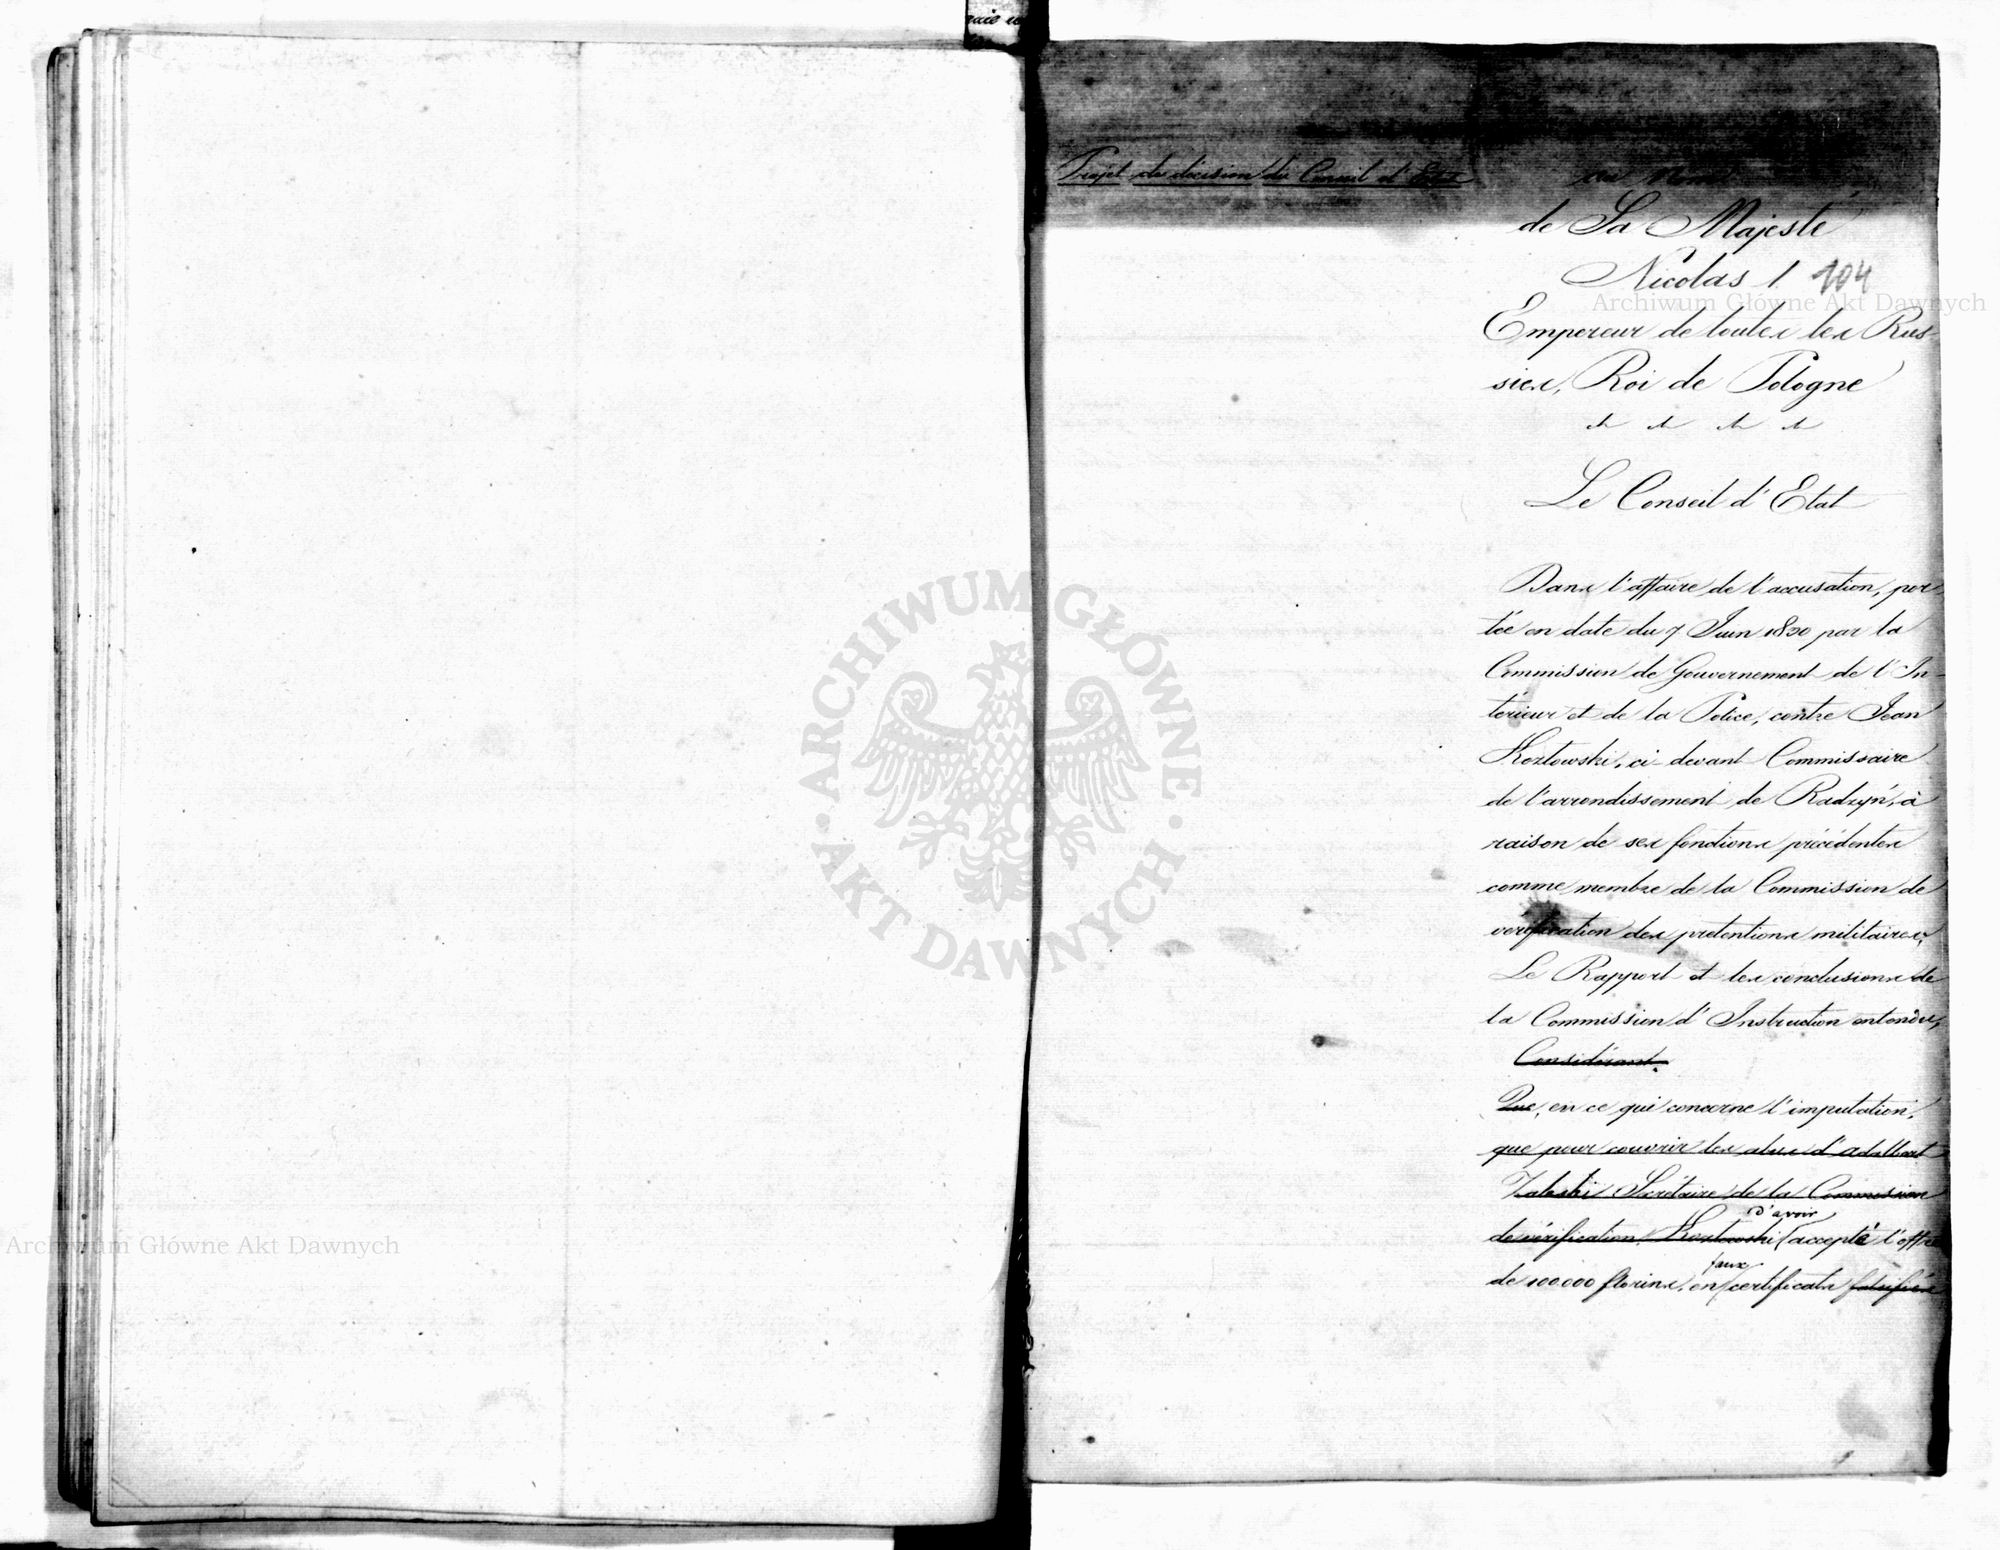 Projet de décision du Conseil d'Etat
au Nom
de Sa Majesté
Nicolas I.
104
Empereur de toutes les Rus-
sies, Roi de Pologne
Le Conseil d'Etat
Dans l'affaire de l'accusation, por-
tée en date du 7. Juin 1830 par la
Commission de Gouvernement de l'In-
térieur et de la Police, contre Jean
Kozłowski, ci-devant Commissaire
de l'arrondissement de Radzyń, à
raison de ses fonctions précédentes
comme membre de la Commission de
vérification des pretentions militaires,
Le Rapport et les conclusions de
la Commission d'Instruction entendu,
Considérant.
Que, en ce qui concerne l'imputation,
que pour couvrir les abus d'Adalbert
Zaleski Secrétaire de la Commission
d'avoir
de vérification, Kozłowski accepté l'offre
faux
de 100.000 florins, en certificats falsifiés
ARCHIWUM GŁÓWNE AKT DAWNYCH
Archiwum Główne Akt Dawnych
Archiwum Główne Akt Dawnych